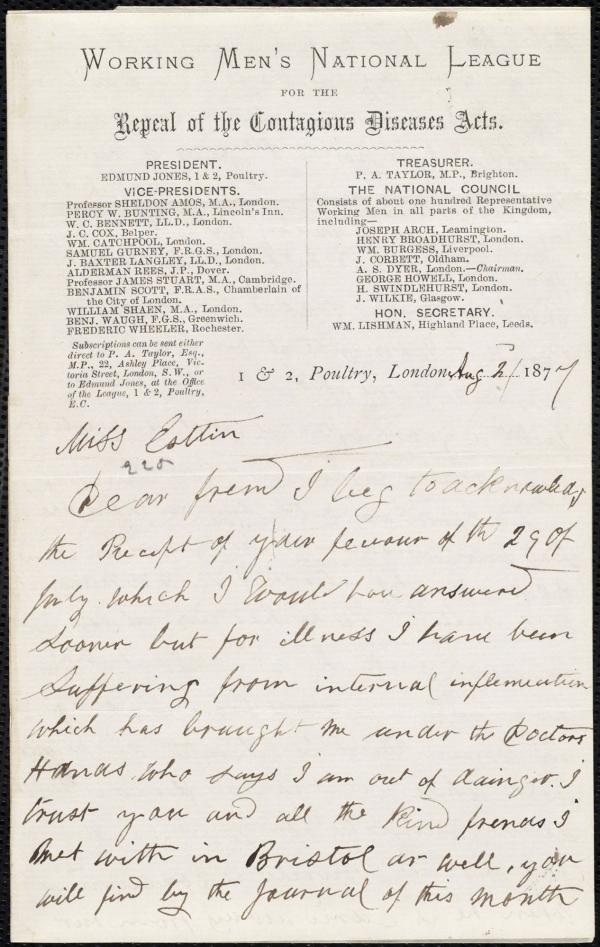 WORKING MEN'S NATIONAL LEAGUE
FOR THE
Repeal of the Contagious Diseases Acts.
PRESIDENT.
EDMUND JONES, 1 & 2, Poultry.
VICE-PRESIDENTS.
Professor SHELDON AMOS, M.A., London.
PERCY W. BUNTING, M.A., Lincoln's Inn.
W. C. BENNETT, LL.D., London.
J. C. COX, Belper.
WM. CATCHPOOL, London.
SAMUEL GURNEY, F.R.G.S., London.
J. BAXTER LANGLEY, LL.D., London.
ALDERMAN REES, J.P., Dover.
Professor JAMES STUART, M.A., Cambridge.
BENJAMIN SCOTT, F.R.A.S., Chamberlain of
the City of London.
WILLIAM SHAEN, M.A., London.
BENJ. WAUGH, F.G.S., Greenwich.
FREDERIC WHEELER, Rochester.
Subscriptions can be sent either
direct to P. A. Taylor, Esq.,
M.P., 22, Ashley Place, Vic-
toria Street, London, S.W., or
to Edmund Jones, at the Office
of the League, 1 & 2, Poultry,
E.C.
TREASURER.
P. A. TAYLOR, M.P., Brighton.
THE NATIONAL COUNCIL
Consists of about one hundred Representative
Working Men in all parts of the Kingdom,
including—
JOSEPH ARCH, Leamington.
HENRY BROADHURST, London.
WM. BURGESS, Liverpool.
J. CORBETT, Oldham.
A. S. DYER, London.—Chairman.
GEORGE HOWELL, London.
H. SWINDLEHURST, London.
J. WILKIE, Glasgow.
HON. SECRETARY.
WM. LISHMAN, Highland Place, Leeds.
1 & 2, Poultry, London, Aug 2 1877
Miss Esttin
225
Dear frend I beg to acknowledg
the Receipt of your favour of th 29 of
July which I would have answered
sooner but for illness I have been
suffering from internal inflemention
which has braught me under th Doctors
Hands who says I am out of dainger. I
trust you and all the kind frends I
met with in Bristol ar well, you
will find by the Journal of this month